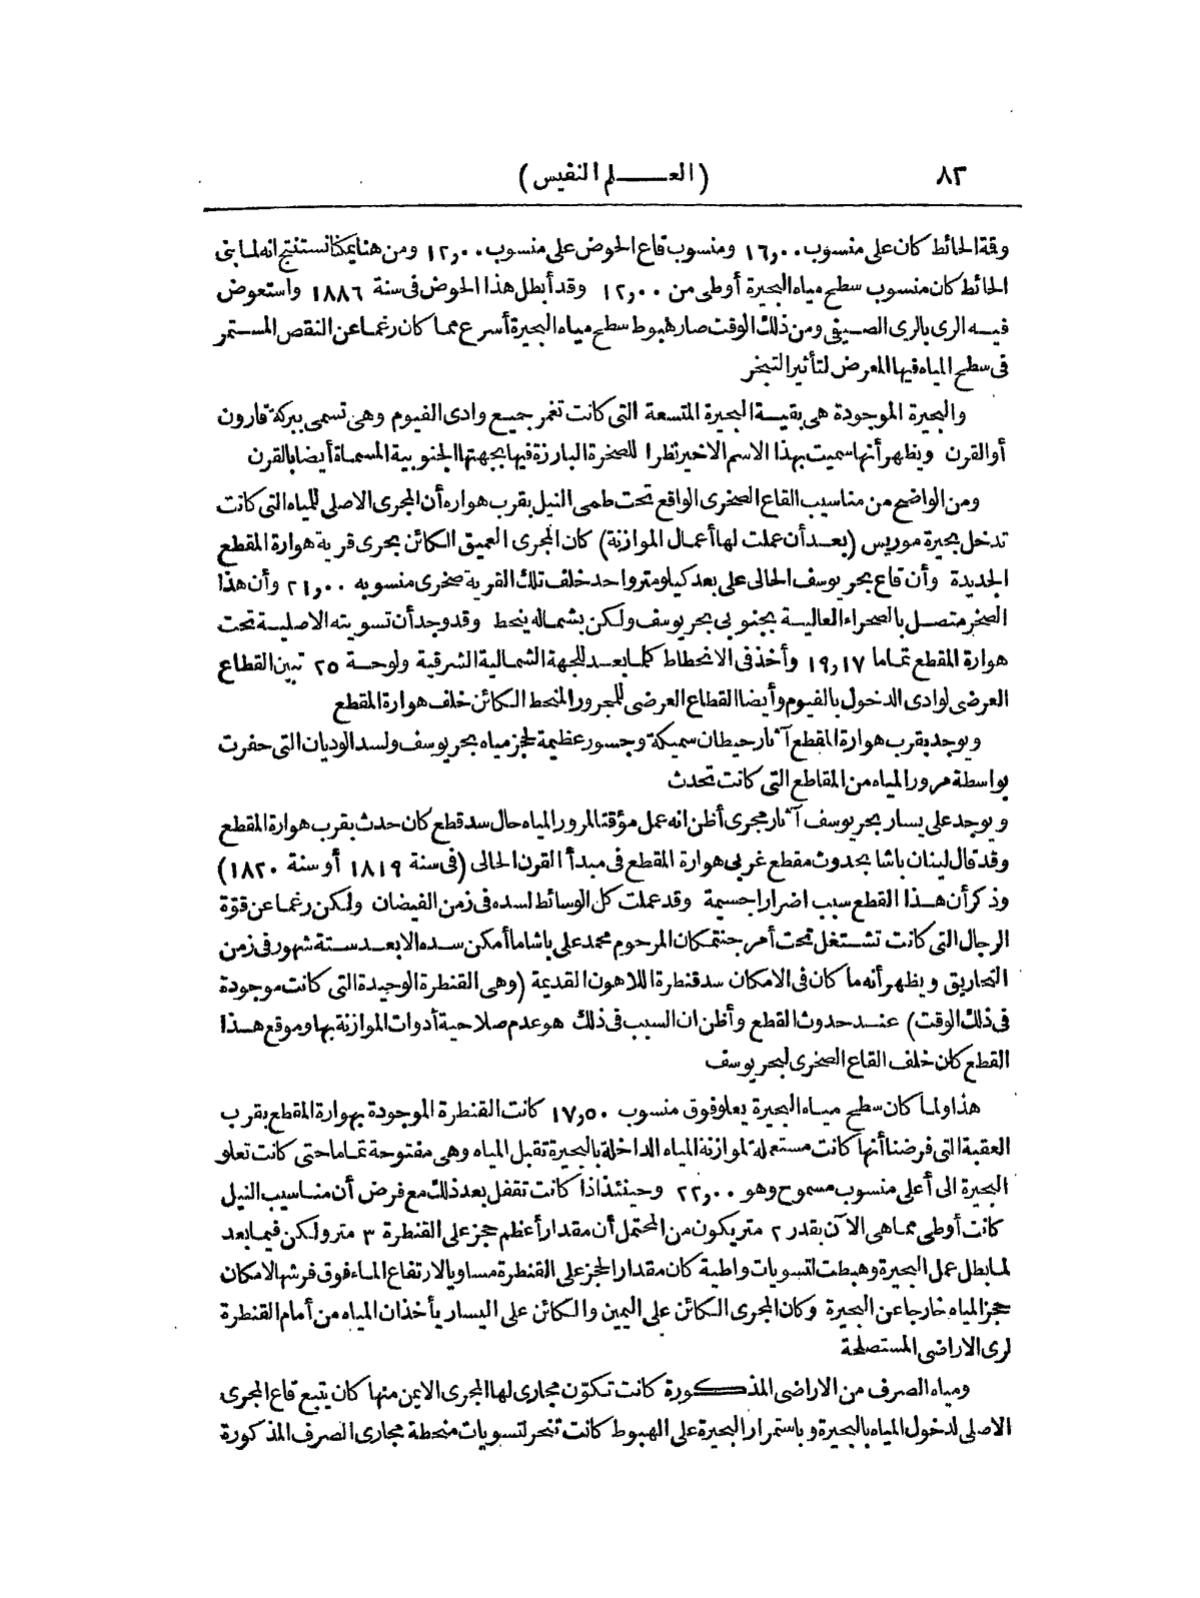 ٨٢ (العلم النفيس)
وقمة الحائط كان على منسوب ١٦,٠٠ ومنسوب قاع الحوض على منسوب ١٢,٠٠ ومن هنا يمكنا نستنتج انه لما بنى
الحائط كان منسوب سطح مياه البحيرة أوطى من ١٢,٠٠ وقد أبطل هذا الحوض فى سنة ١٨٨٦ واستعوض
فيه الرى بالرى الصيفى ومن ذلك الوقت صار هبوط سطح مياه البحيرة أسرع مما كان رغما عن النقص المستمر
فى سطح المياه فيها المعرض لتأثير التبخر
والبحيرة الموجودة هى بقية البحيرة المتسعة التى كانت تغمر جميع وادى الفيوم وهى تسمى ببركة قارون
أو القرن ويظهر أنها سميت بهذا الاسم الاخير نظرا للصخرة البارزة فيها بجهتها الجنوبية المسماة أيضا بالقرن
ومن الواضح من مناسيب القاع الصخرى الواقع تحت طمى النيل بقرب هواره أن المجرى الاصلى للمياه التى كانت
تدخل بحيرة موريس (بعد أن عملت لها أعمال الموازنة) كان المجرى العميق الكائن بحرى قرية هوارة المقطع
الجديدة وأن قاع بحر يوسف الحالى على بعد كيلومتر واحد خلف تلك القرية صخرى منسوبه ٢١,٠٠ وأن هذا
الصخر متصل بالصحراء العالية بجنوبى بحر يوسف ولكن بشماله ينحط وقد وجد أن تسويته الاصلية تحت
هوارة المقطع تماما ١٩,١٧ وأخذ فى الانحطاط كلما بعد للجهة الشمالية الشرقية ولوحة ٢٥ تبين القطاع
العرضى لوادى الدخول بالفيوم وأيضا القطاع العرضى للمجرور المنحط الكائن خلف هوارة المقطع
ويوجد بقرب هوارة المقطع آثار حيطان سميكة وجسور عظيمة لحجز مياه بحر يوسف ولسد الوديان التى حفرت
بواسطة مرور المياه من المقاطع التى كانت تحدث
ويوجد على يسار بحر يوسف آثار مجرى أظن انه عمل مؤقتا لمرور المياه حال سد قطع كان حدث بقرب هوارة المقطع
وقد قال لينان باشا بحدوث مقطع غربى هوارة المقطع فى مبدأ القرن الحالى (فى سنة ١٨١٩ أو سنة ١٨٢٠)
وذكر أن هذا القطع سبب اضرارا جسيمة وقد عملت كل الوسائط لسده فى زمن الفيضان ولكن رغما عن قوة
الرجال التى كانت تشتغل تحت أمر جنتمكان المرحوم محمد على باشا ما أمكن سده الا بعد ستة شهور فى زمن
التحاريق ويظهر أنه ما كان فى الامكان سد قنطرة اللاهون القديمة (وهى القنطرة الوحيدة التى كانت موجودة
فى ذلك الوقت) عند حدوث القطع وأظن ان السبب فى ذلك هو عدم صلاحية أدوات الموازنة بها وموقع هذا
القطع كان خلف القاع الصخرى لبحر يوسف
هذا ولما كان سطح مياه البحيرة يعلو فوق منسوب ١٧,٥٠ كانت القنطرة الموجودة بهوارة المقطع بقرب
العقبة التى فرضنا أنها كانت مستعملة لموازنة المياه الداخلة بالبحيرة تقبل المياه وهى مفتوحة تماما حتى كانت تعلو
البحيرة الى أعلى منسوب مسموح وهو ٢٢,٠٠ وحينئذ اذا كانت تقفل بعد ذلك مع فرض أن مناسيب النيل
كانت أوطى مما هى الآن بقدر ٢ متر يكون من المحتمل أن مقدار أعظم حجز على القنطرة ٣ متر ولكن فيما بعد
لما بطل عمل البحيرة وهبطت لتسويات واطية كان مقدار الحجز على القنطرة مساويا لارتفاع الماء فوق فرشها لامكان
حجز المياه خارجا عن البحيرة وكان المجرى الكائن على اليمين والكائن على اليسار يأخذان المياه من أمام القنطرة
لرى الاراضى المستصلحة
ومياه الصرف من الاراضى المذكورة كانت تكوّن مجارى لها المجرى الايمن منها كان يتبع قاع المجرى
الاصلى لدخول المياه بالبحيرة وباستمرار البحيرة على الهبوط كانت تنحر لتسويات منحطة مجارى الصرف المذكورة